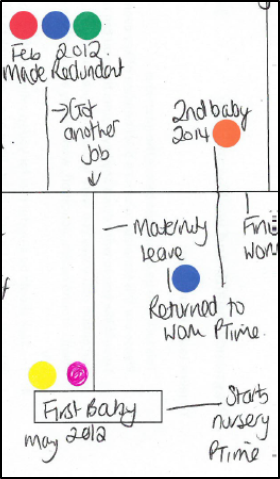 Feb 2012
Made Redundant
→Got
another
Job
2nd baby
2014
Maternity
leave
Returned to
Work PTime.
First Baby
May 2012
Starts
nursery
PTime